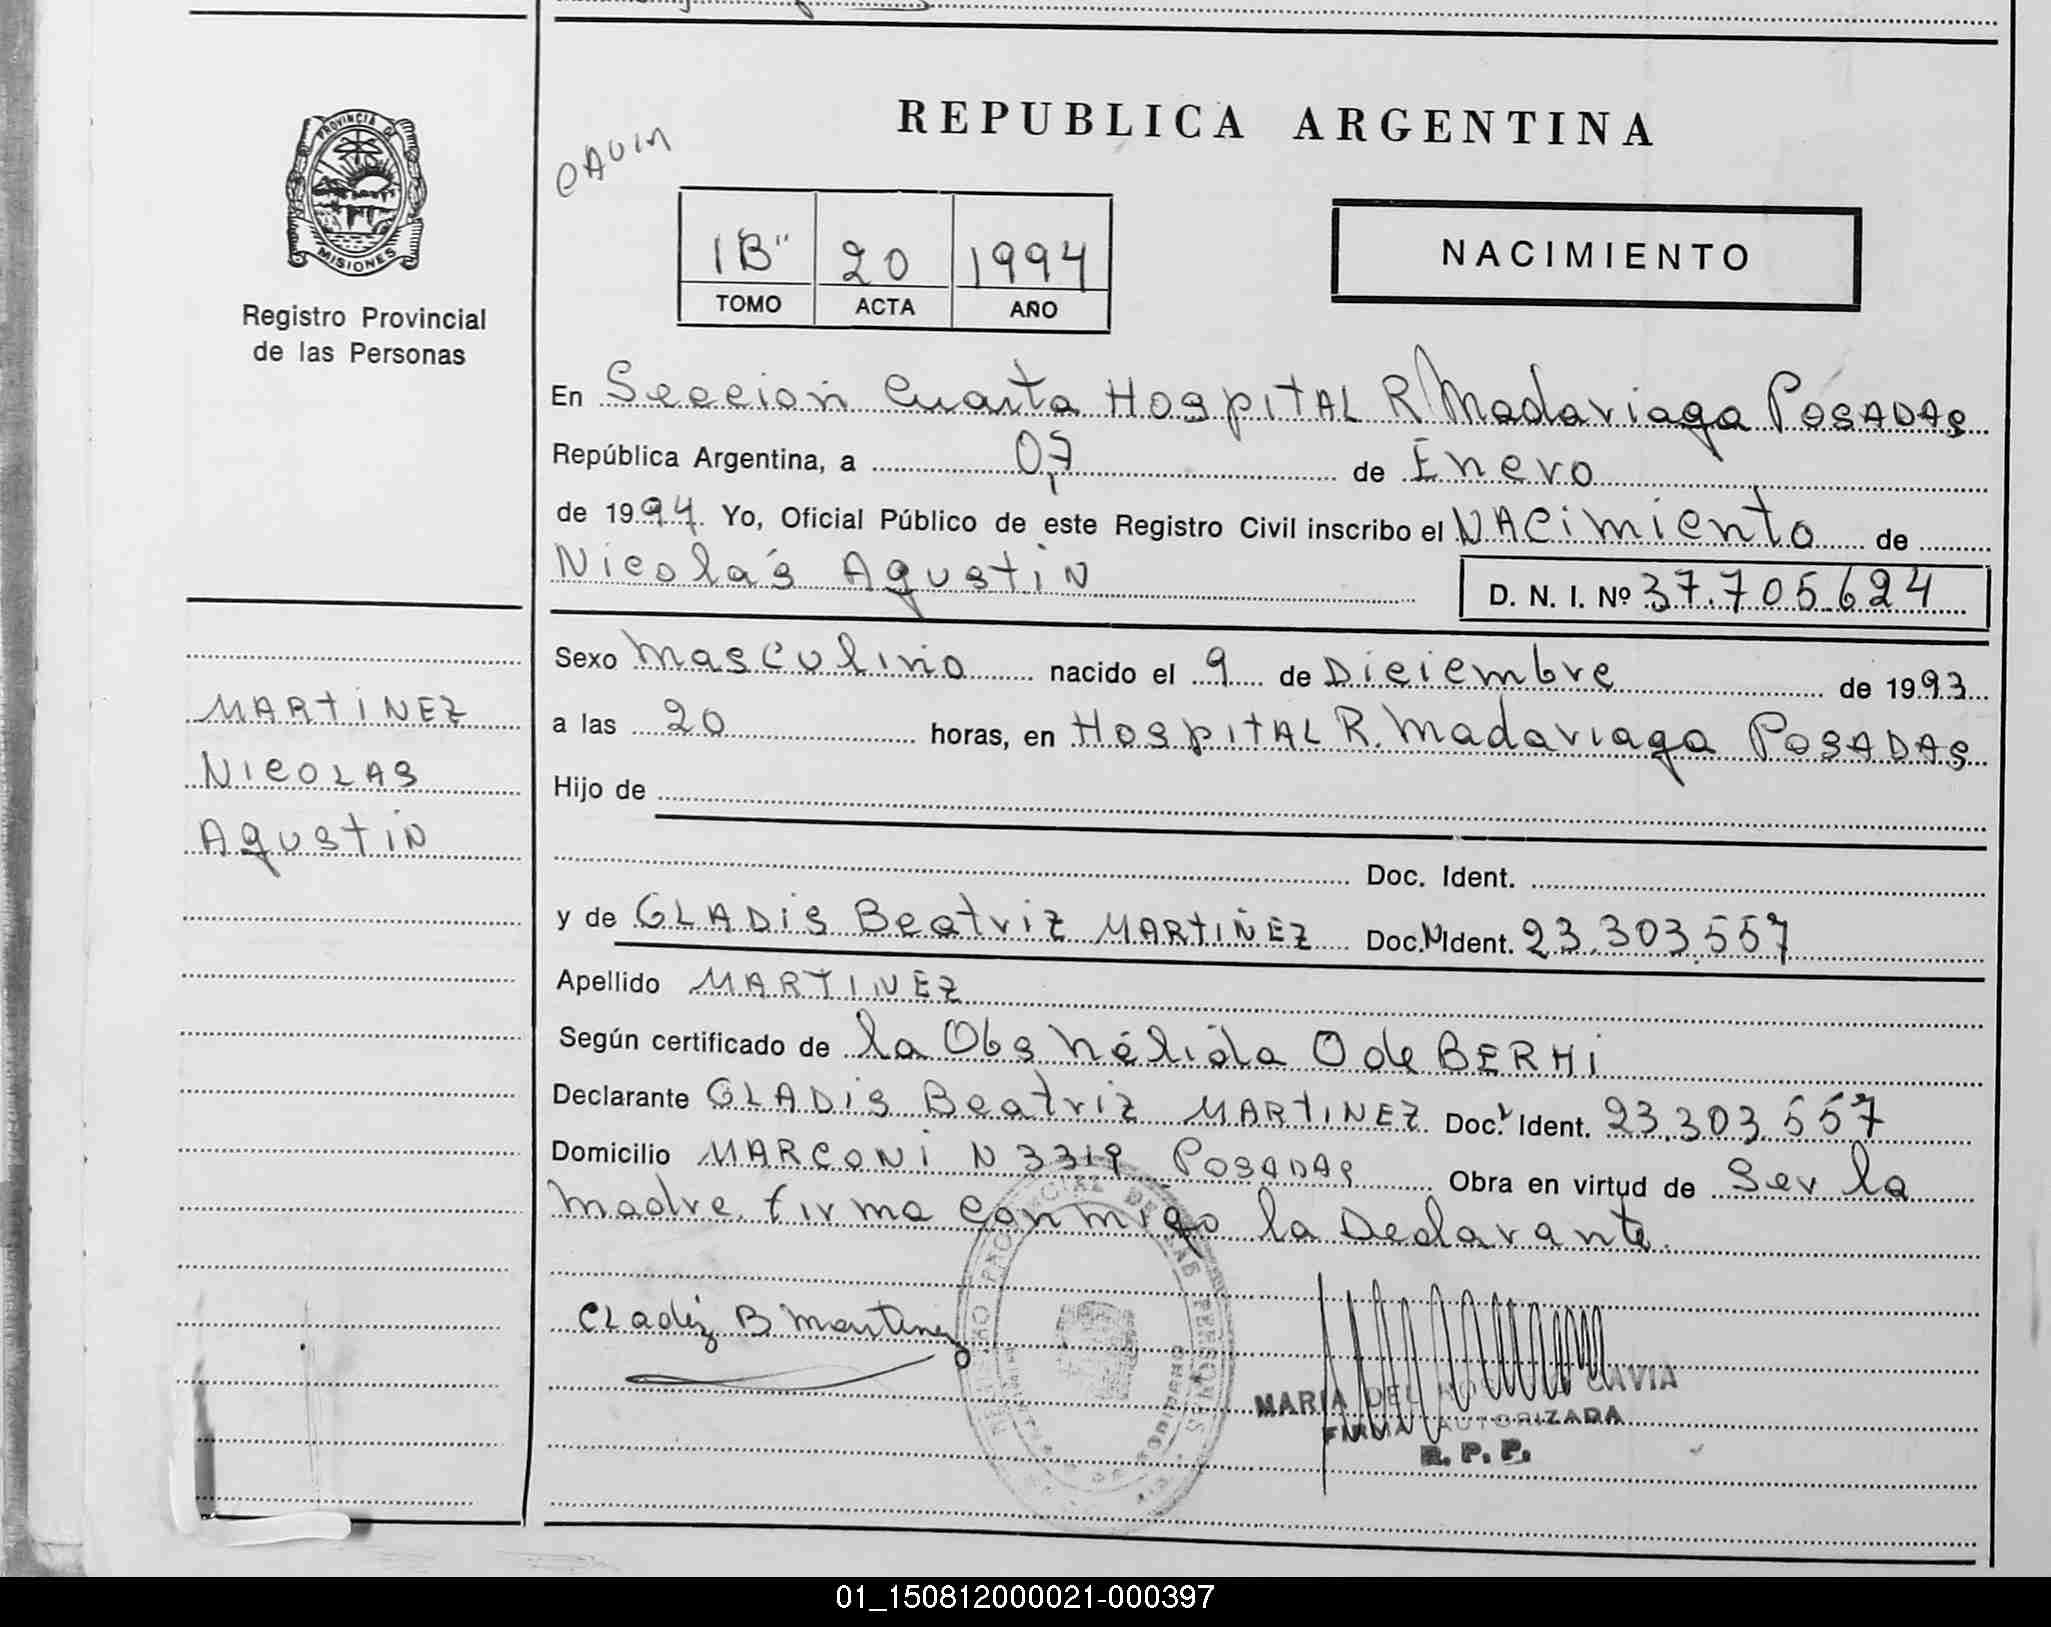 REPUBLICA ARGENTINA
PROVINCIA DE
MISIONES
Registro Provincial
de las Personas
1B" 20 1994
TOMO ACTA AÑO
NACIMIENTO
En Seccion Cuarta Hospital R Madariaga Posadas
República Argentina, a 07 de Enero
de 1994. Yo, Oficial Público de este Registro Civil inscribo el Nacimiento de
Nicolás Agustin D. N. I. Nº 37.705.624
Sexo masculino nacido el 9 de Diciembre de 1993
a las 20 horas, en Hospital R. Madariaga Posadas
Hijo de
Doc. Ident.
y de GLADis Beatriz MARTIÑEZ Doc.N Ident. 23.303.557
Apellido MARTINEZ
Según certificado de la Obs Nélida O de BERHi
Declarante GLADis Beatriz MARTINEZ Doc. Ident. 23.303.557
Domicilio MARCONi N 3319 POSADAS Obra en virtud de Ser la
madre. firma conmigo la Declarante.
MARTINEZ
NICOLAS
AgustiN
Cladiz B Martinez
MARIA DEL CAVIA
FIRMA AUTORIZADA
R. P. P.
01_150812000021-000397